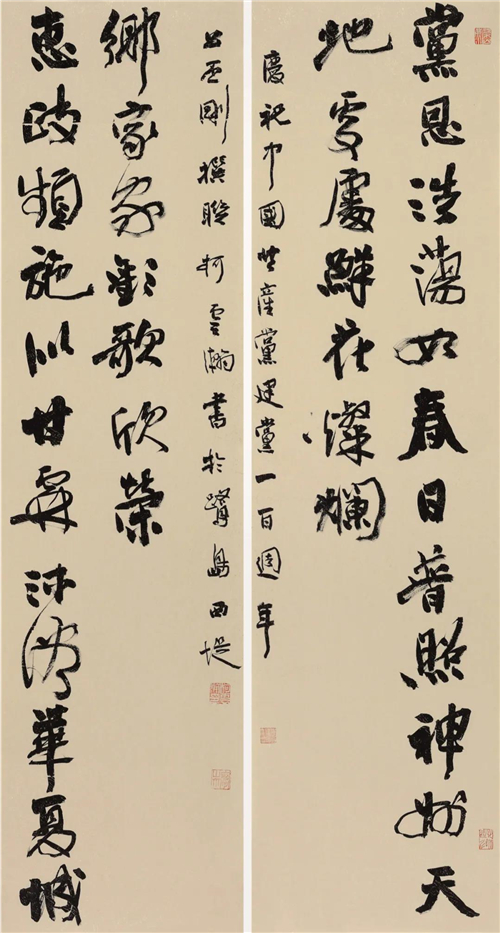 黨恩浩蕩如春日普照神州天
地處處鮮花燦爛
慶祝中國共產黨建黨一百週年
惠政頻施似甘霖沐華夏城
鄉家家歡歌欣榮
剛撰聯柯雲瀚書於鷺島西堤